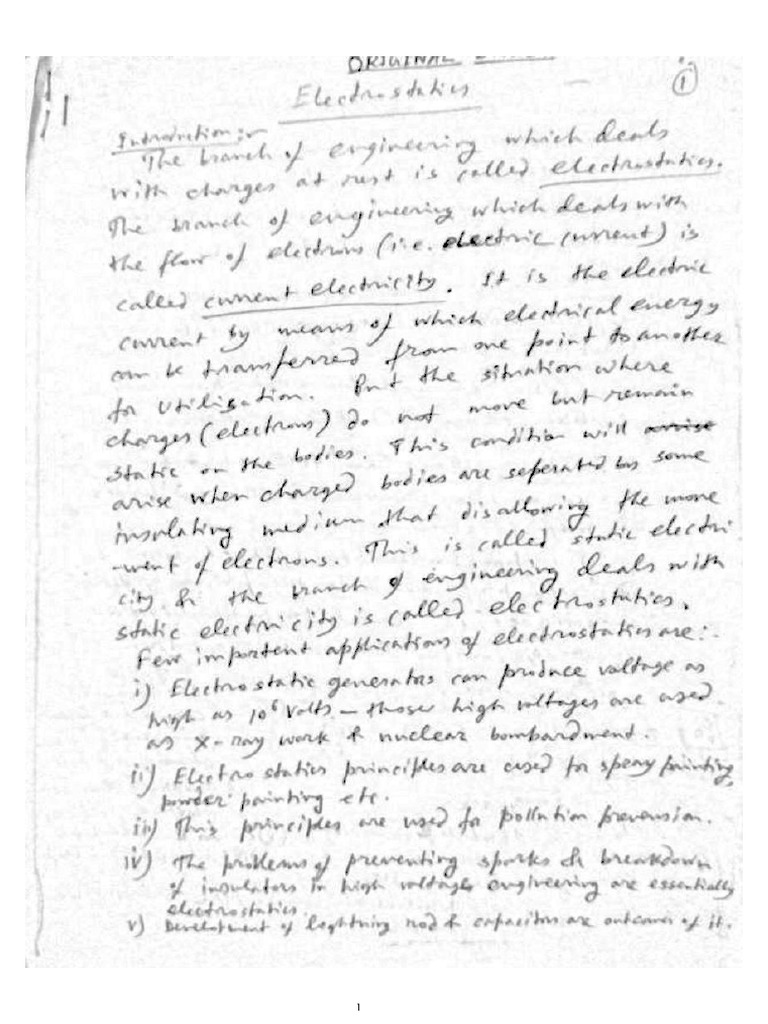 ORIGINAL
1
Electrostatics
Introduction:-
The branch of engineering which deals
with charges at rest is called electrostatics.
The branch of engineering which deals with
the flow of electrons (i.e. electric current) is
called current electricity. It is the electric
current by means of which electrical energy
can be transferred from one point to another
for utilisation. But the situation where
charges (electrons) do not move but remain
static on the bodies. This condition will arise
arise when charged bodies are seperated by some
insulating medium that disallowing the move
-ment of electrons. This is called static electri
city & the branch of engineering deals with
static electricity is called electrostatics.
Few importent applications of electrostatics are:-
i) Electrostatic generators can produce voltage as
high as 10⁶ volts — these high voltages are used
as X-ray work & nuclear bombardment.
ii) Electrostatics principles are used for speay painting,
powder painting etc.
iii) This principles are used for pollution prevension.
iv) The problems of preventing sparks & breakdown
of insulators in high voltages engineering are essentially
electrostatics.
v) Development of lightning rod & capacitors are outcomes of it.
1